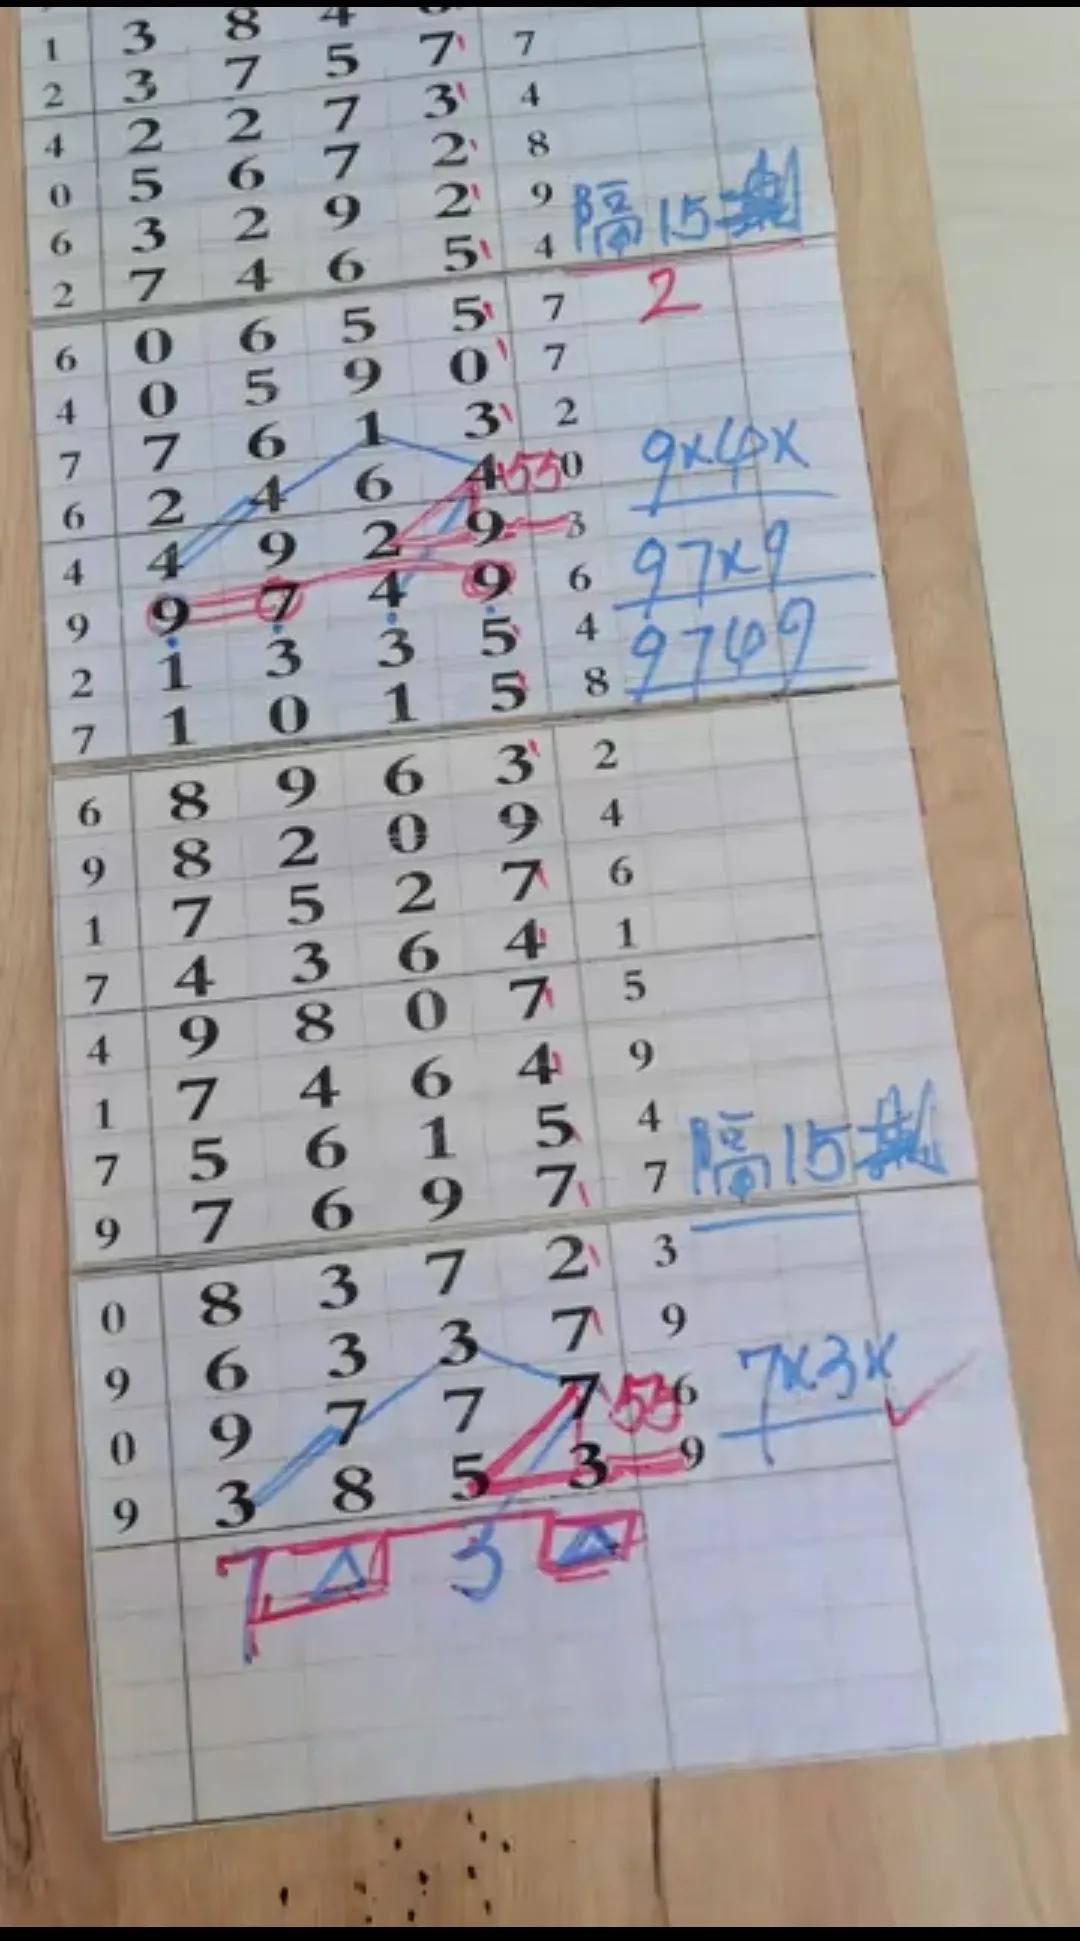 3 8 4
1 3 7 5 7 7
2 3 2 7 3 4
4 2 6 7 2 8
0 5 2 9 2 9 隔15期
6 3 4 6 5 4
2 7
2
6 0 6 5 5 7
4 0 5 9 0 7
7 7 6 1 3 2
6 2 4 6 4 55 0 9x4x
4 4 9 2 9 3
9 9 7 4 9 6 97x9
2 1 3 3 5 4 9749
7 1 0 1 5 8
6 8 9 6 3 2
9 8 2 0 9 4
1 7 5 2 7 6
7 4 3 6 4 1
4 9 8 0 7 5
1 7 4 6 4 9
7 5 6 1 5 4
9 7 6 9 7 7 隔15期
0 8 3 7 2 3
9 6 3 3 7 9
0 9 7 7 7 55 6 7x3x
9 3 8 5 3 9
7 3